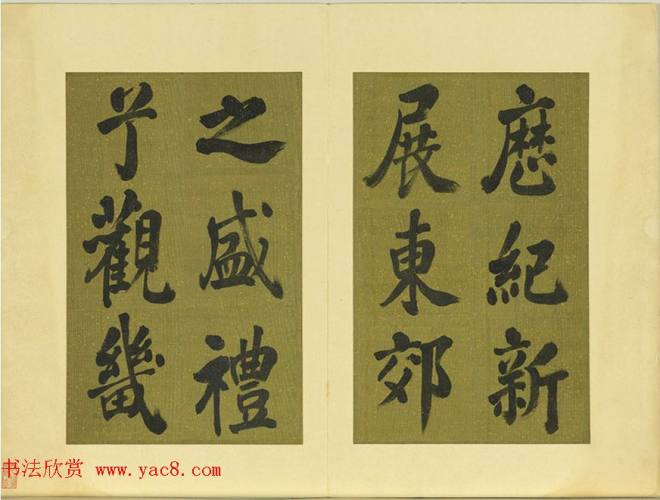 厯紀新
展東郊
之盛禮
觀畿
书法欣赏 www.yac8.com